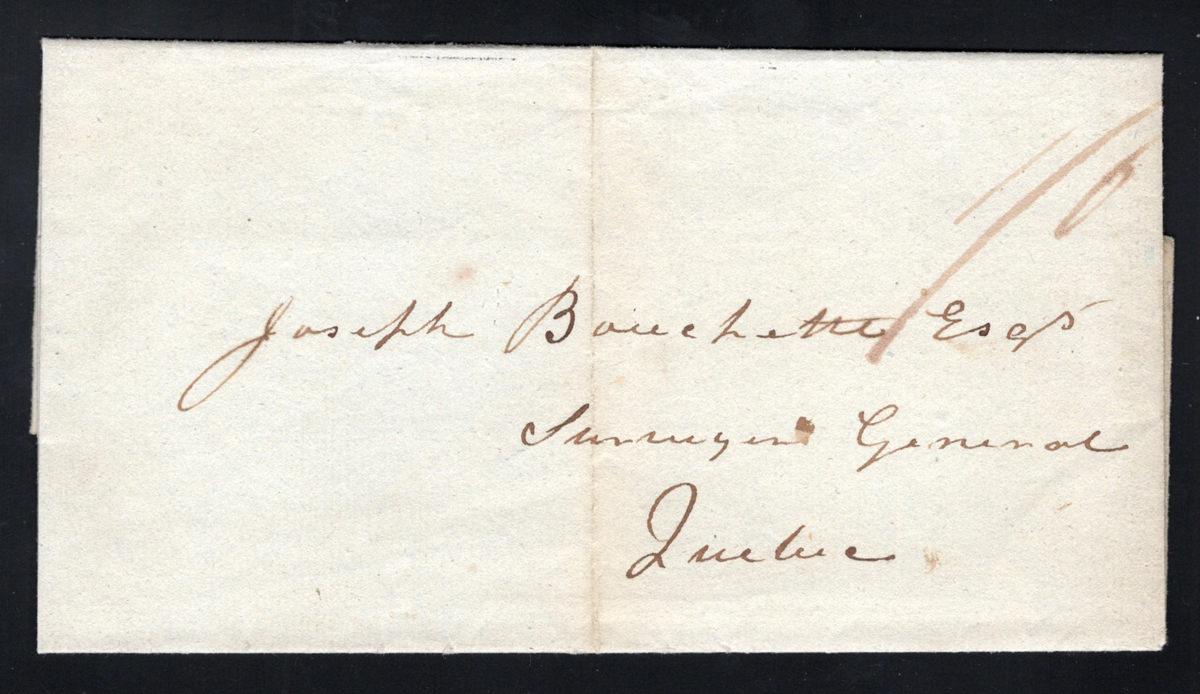 Joseph Bouchette Esqr
Surveyor General
Quebec